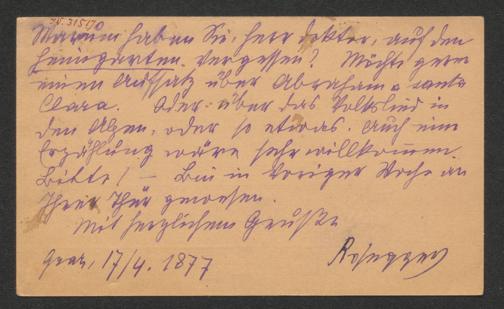 I.N. 31500
Warum haben Sie, Herr Doktor, auf den
Heimgarten vergessen? Möchte gern
einen Aufsatz über Abraham a santa
Clara. Oder über das Volkslied in
den Alpen, oder so etwas. Auch eine
Erzählung wäre sehr willkommen.
Bitte! — Bin in voriger Woche an
Ihrer Thür gewesen.
Mit herzlichem Gruße
Graz, 17/4. 1877 Rosegger